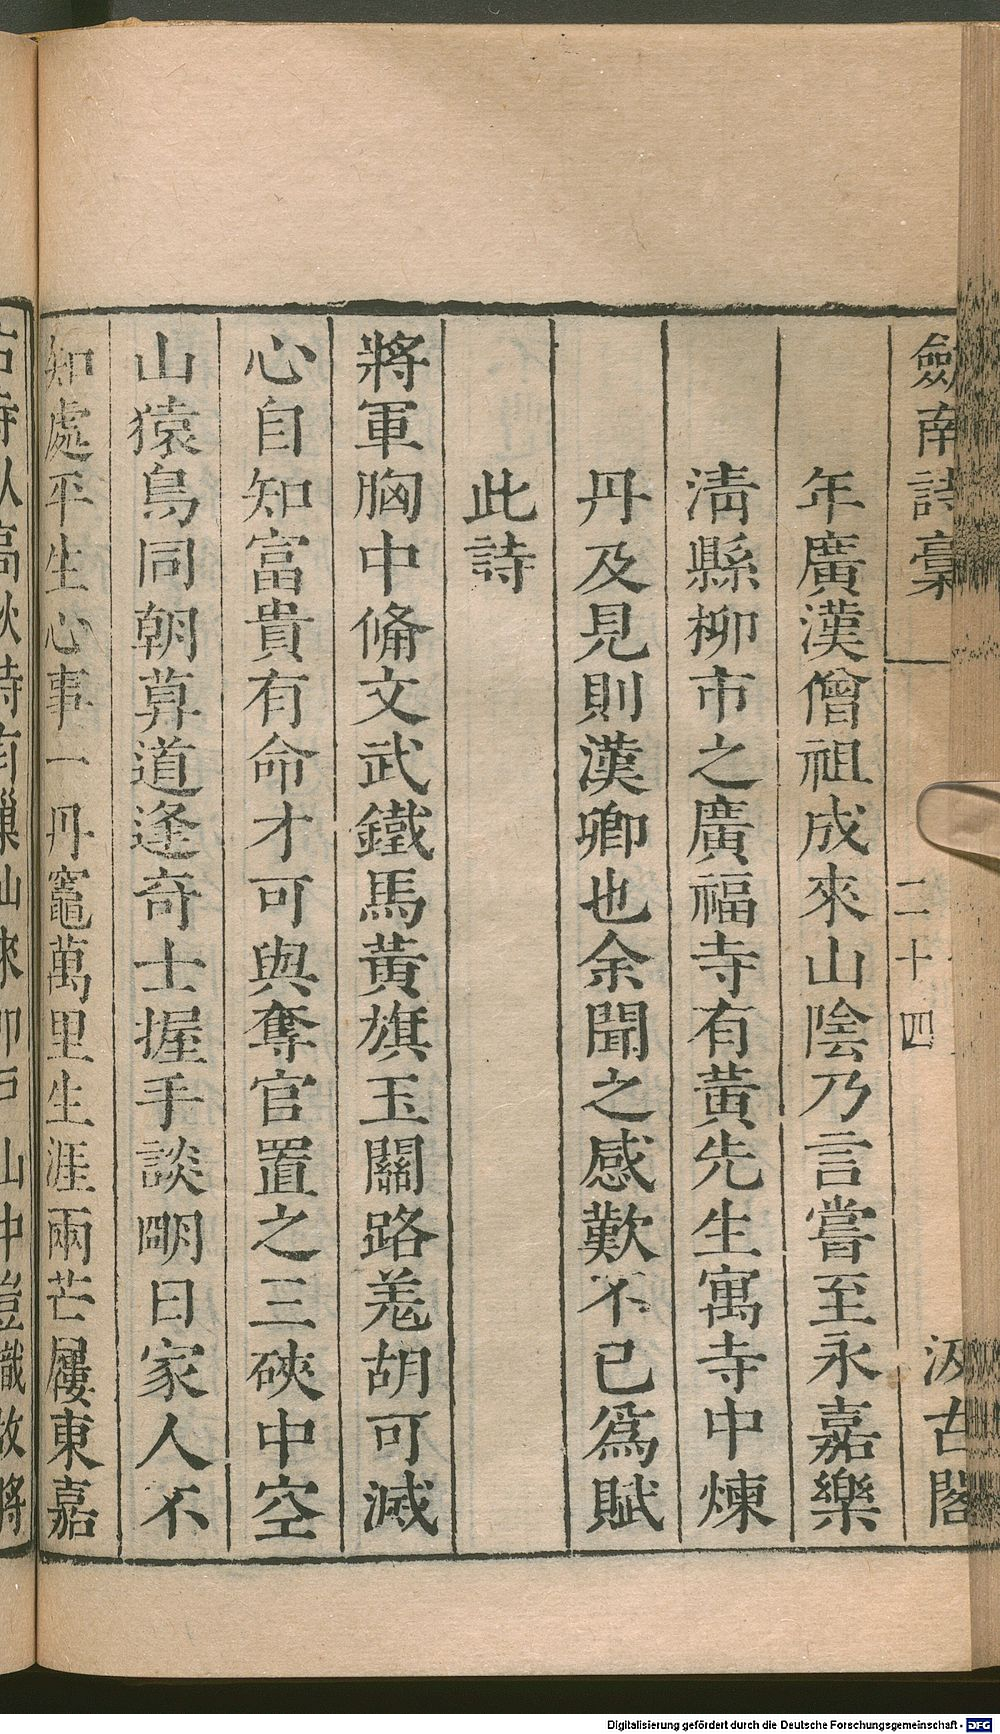 劍南詩稾
二十四
汲古閣
年廣漢僧祖成來山陰乃言嘗至永嘉樂
淸縣柳市之廣福寺有黃先生寓寺中煉
丹及見則漢卿也余聞之感歎不已爲賦
此詩
將軍胸中俻文武鐵馬黃旗玉關路羗胡可滅
心自知富貴有命才可與奪官置之三硤中空
山猿鳥同朝算道逢奇士握手談明日家人不
知處平生心事一丹竈萬里生涯兩芒屨東嘉
Digitalisierung gefördert durch die Deutsche Forschungsgemeinschaft - DFG